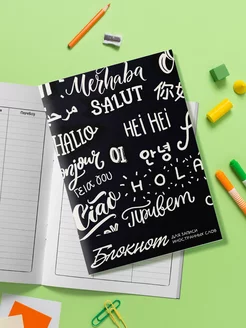 Merhaba
SALUT
مرحبا
你好
HALLO
HEI HEI
Bonjour
OI
안녕
Γειά σου
HOLA
Ciao
Привет
Блокнот
ДЛЯ ЗАПИСИ
ИНОСТРАННЫХ СЛОВ